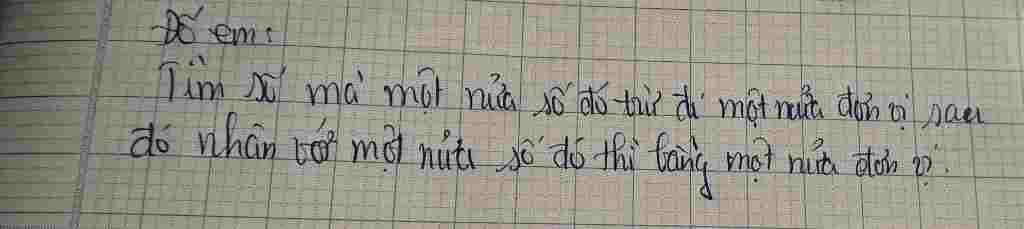 Đố em:
Tìm số mà một nửa số đó trừ đi một nửa đơn vị sau
đó nhân với một nửa số đó thì bằng một nửa đơn vị.